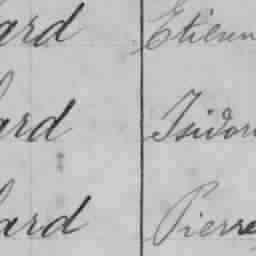 ard Etienn
ard Isidor
ard Pierre